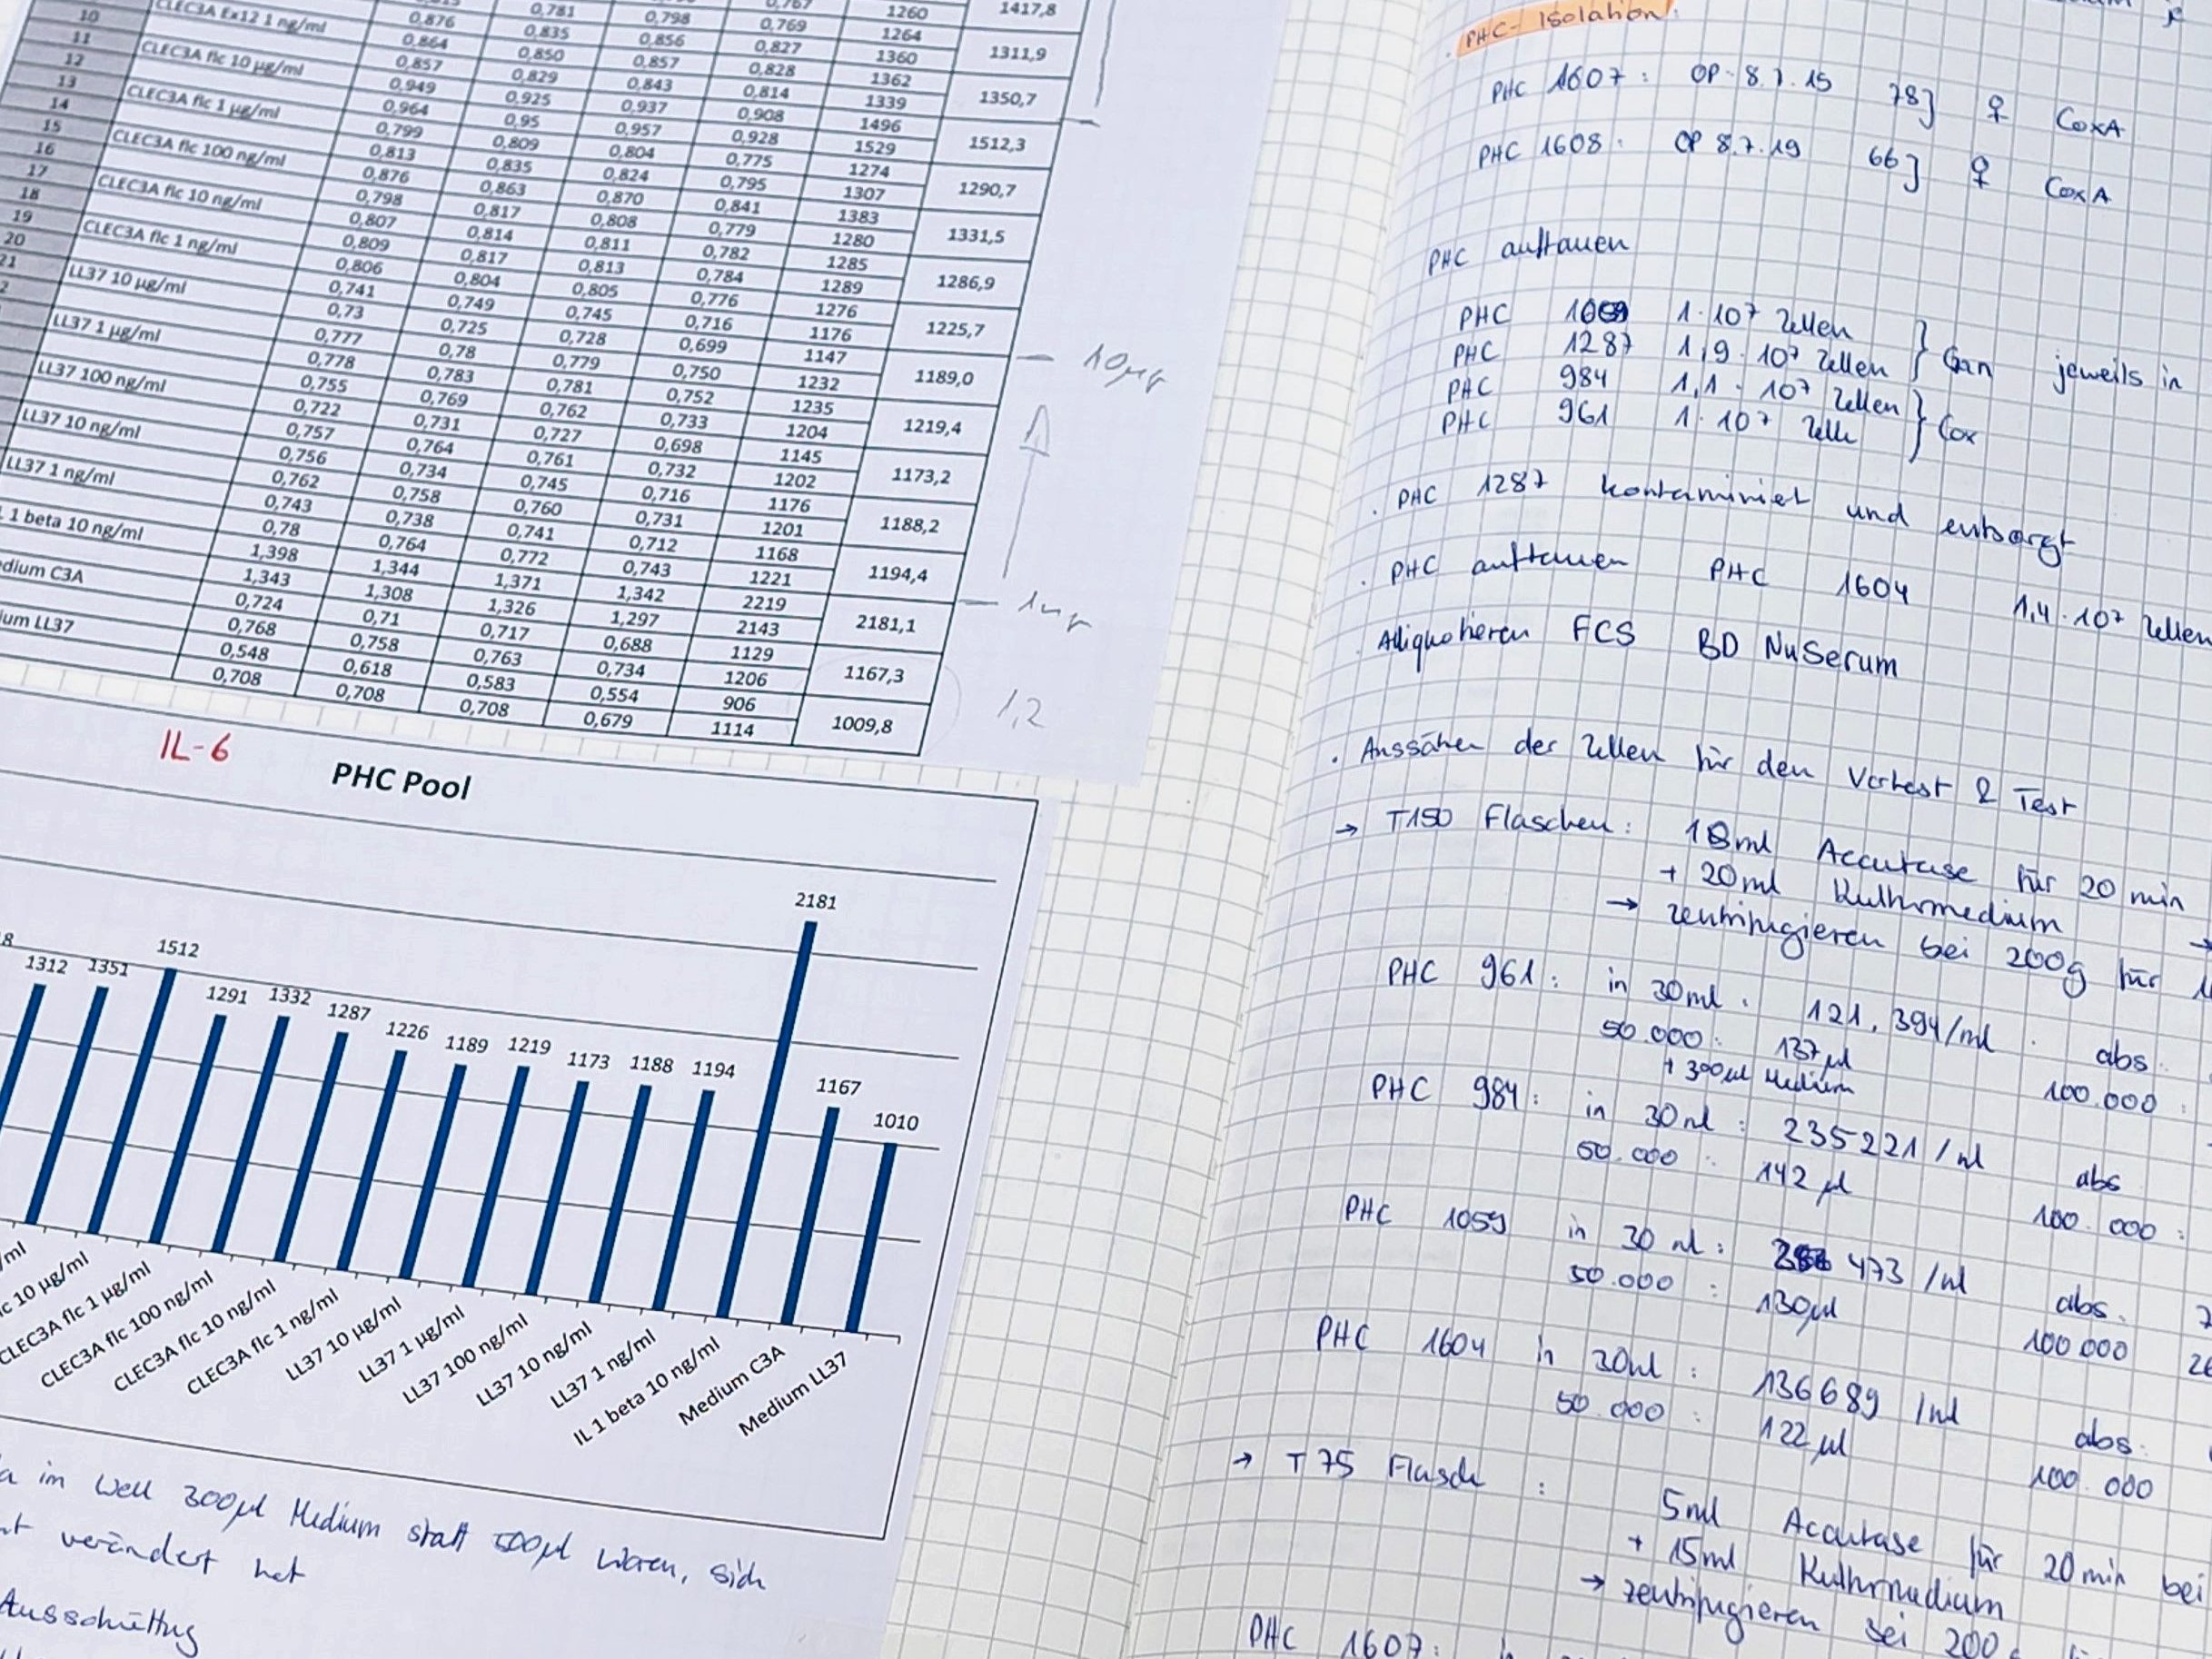 10 CLEC3A Ex12 1 ng/ml 0,876 0,781 0,798 0,767 1260 1417,8
11 0,864 0,835 0,856 0,769 1264 1311,9
12 CLEC3A flc 10 µg/ml 0,857 0,850 0,857 0,827 1360
13 0,949 0,829 0,843 0,828 1362 1350,7
14 CLEC3A flc 1 µg/ml 0,964 0,925 0,937 0,814 1339
15 0,799 0,95 0,957 0,908 1496 1512,3
16 CLEC3A flc 100 ng/ml 0,813 0,809 0,804 0,928 1529
17 0,876 0,835 0,824 0,775 1274 1290,7
18 CLEC3A flc 10 ng/ml 0,798 0,863 0,870 0,795 1307
19 0,807 0,817 0,808 0,841 1383 1331,5
20 CLEC3A flc 1 ng/ml 0,809 0,814 0,811 0,779 1280
21 0,806 0,817 0,813 0,782 1285 1286,9
LL37 10 µg/ml 0,741 0,804 0,805 0,784 1289
0,73 0,749 0,745 0,776 1276 1225,7
LL37 1 µg/ml 0,777 0,725 0,728 0,716 1176
0,778 0,78 0,779 0,699 1147 1189,0
LL37 100 ng/ml 0,755 0,783 0,781 0,750 1232
0,722 0,769 0,762 0,752 1235 1219,4
LL37 10 ng/ml 0,757 0,731 0,727 0,733 1204
0,756 0,764 0,761 0,698 1145 1173,2
LL37 1 ng/ml 0,762 0,734 0,745 0,732 1202
0,743 0,758 0,760 0,716 1176 1188,2
1 beta 10 ng/ml 0,78 0,738 0,741 0,731 1201
1,398 0,764 0,772 0,712 1168 1194,4
dium C3A 1,343 1,344 1,371 0,743 1221
0,724 1,308 1,326 1,342 2219 2181,1
um LL37 0,768 0,71 0,717 1,297 2143
0,548 0,758 0,763 0,688 1129 1167,3
0,708 0,618 0,583 0,734 1206
0,708 0,708 0,554 906 1009,8
0,679 1114
10µg
1,2
IL-6
PHC Pool
8 1312 1351 1512 1291 1332 1287 1226 1189 1219 1173 1188 1194 2181 1167 1010
/ml
lc 10 µg/ml
CLEC3A flc 1 µg/ml
CLEC3A flc 100 ng/ml
CLEC3A flc 10 ng/ml
CLEC3A flc 1 ng/ml
LL37 10 µg/ml
LL37 1 µg/ml
LL37 100 ng/ml
LL37 10 ng/ml
LL37 1 ng/ml
IL 1 beta 10 ng/ml
Medium C3A
Medium LL37
in Well 300µl Medium statt 500µl waren, sich
verändert hat
Ausschüttung
PHC-Isolation:
PHC 1607: OP 8.7.15 78J ♀ CoxA
PHC 1608: OP 8.7.19 66J ♀ CoxA
PHC auftauen
PHC 1·10⁷ Zellen
PHC 1287 1,9·10⁷ Zellen } Gon jeweils in
PHC 984 1,1·10⁷ Zellen
PHC 961 1·10⁷ Zelle } Cox
· PHC 1287 kontaminiert und entsorgt
· PHC auftauen PHC 1604 1,4·10⁷ Zellen
· Alliquotieren FCS BD NuSerum
· Aussähen der Zellen für den Vortest & Test
→ T150 Flaschen: 18ml Accutase für 20 min
+ 20ml Kulturmedium →
→ zentrifugieren bei 200g für
PHC 961: in 30ml: 121.394/ml abs.
50.000: 137µl 100.000:
+ 300µl Medium
PHC 984: in 30ml: 235221/ml abs
50.000: 142µl 100.000:
PHC 1059 in 30ml: 473/ml abs.
50.000: 130µl 100 000
PHC 1604 in 30ml: 136689/ml abs:
50.000: 122µl 100.000
→ T75 Flasche: 5ml Accutase für 20min bei
+ 15ml Kulturmedium
→ zentrifugieren bei 200
PHC 1607: